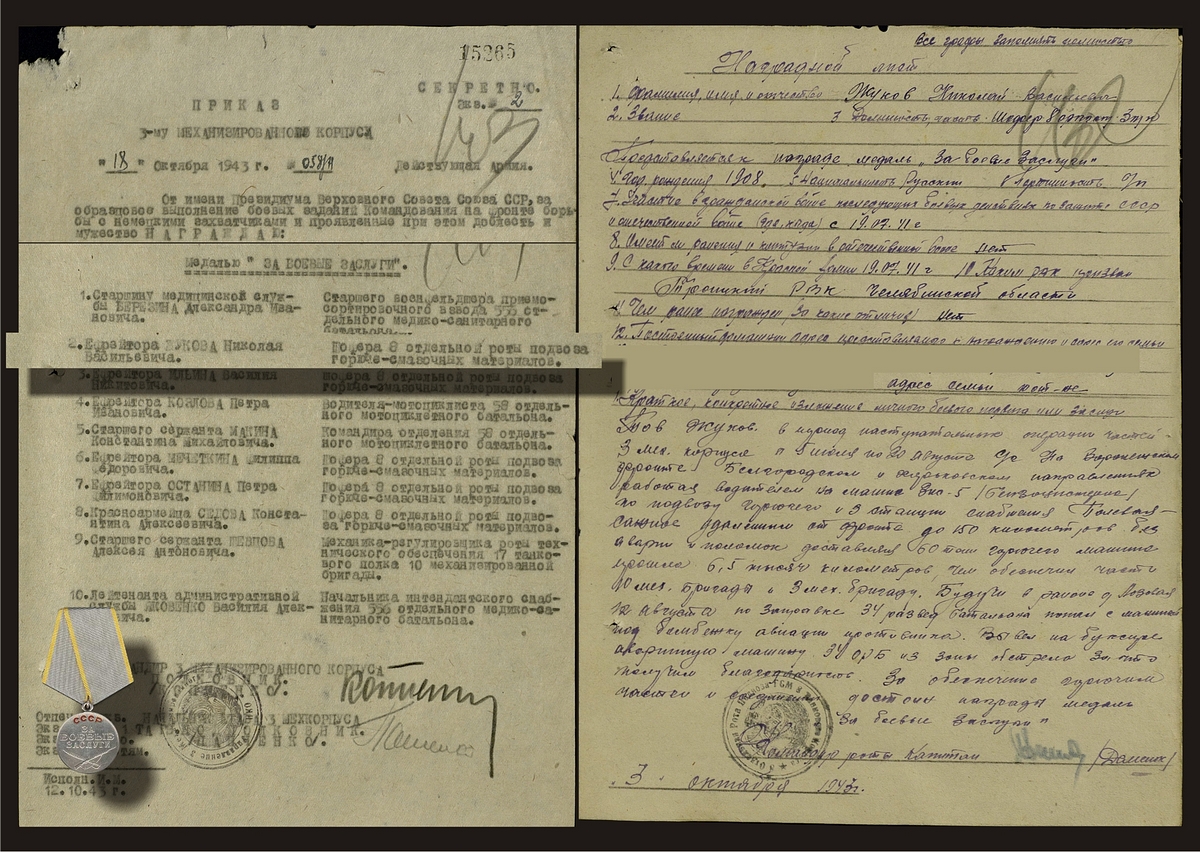 15265
СЕКРЕТНО.
Экз. № 2
ПРИКАЗ
3-му МЕХАНИЗИРОВАННОМУ КОРПУСУ
"18" Октября 1943 г. № 058/н Действующая Армия.
От имени Президиума Верховного Совета Союза ССР, за
образцовое выполнение боевых заданий Командования на фронте борь-
бы с немецкими захватчиками и проявленные при этом доблесть и
мужество НАГРАЖДАЮ:
Медалью "ЗА БОЕВЫЕ ЗАСЛУГИ".
1. Старшину медицинской служ- Старшего военфельдшера приемо-
бы БЕРЕЗИНА Александра Ива- сортировочного взвода 556 от-
новича. дельного медико-санитарного
батальона.
2. Ефрейтора ЖУКОВА Николая Шофера 8 отдельной роты подвоза
Васильевича. горюче-смазочных материалов.
3. Ефрейтора ИЛЬИНА Василия Шофера 8 отдельной роты подвоза
Никитовича. горюче-смазочных материалов.
4. Ефрейтора КОЗЛОВА Петра Водителя-мотоциклиста 58 отдель-
Ивановича. ного мотоциклетного батальона.
5. Старшего сержанта МАКИНА Командира отделения 58 отдель-
Константина Михайловича. ного мотоциклетного батальона.
6. Ефрейтора МЕЧЕТКИНА Филиппа Шофера 8 отдельной роты подвоза
Федоровича. горюче-смазочных материалов.
7. Ефрейтора ОСТАНИНА Петра Шофера 8 отдельной роты подвоза
Филимоновича. горюче-смазочных материалов.
8. Красноармейца СЕДОВА Конста- Шофера 8 отдельной роты подвоза
нтина Алексеевича. горюче-смазочных материалов.
9. Старшего сержанта ШЕВЦОВА Механика-регулировщика роты тех-
Алексея Антоновича. нического обеспечения 17 танко-
вого полка 10 механизированной
бригады.
10. Лейтенанта административной Начальника интендантского снаб-
службы ЯКОВЕНКО Василия Алек- жения 556 отдельного медико-са-
вича. нитарного батальона.
3 МЕХАНИЗИРОВАННОГО КОРПУСА
МЕХКОРПУСА
СССР
ЗА
БОЕВЫЕ
ЗАСЛУГИ
Исполн. И.М.
12.10.43 г.
Все графы заполнять полностью
Наградной лист
1. Фамилия, имя и отчество Жуков Николай Васильевич
2. Звание 3 Должность, часть Шофер
Представляется к награде медаль "За боевые Заслуги"
4. Год рождения 1908. 5 Национальность Русский 6 Партийность б/п
7. Участие в гражданской войне последующих боевых действиях по защите СССР
и отечественной войне (где, когда) с 19.07.41 г
8. Имеет ли ранения и контузии в отечественной войне нет
9. С какого времени в Красной армии 19.07.41 г 10 Каким рвк призван
Троицкий РВК Челябинской области
11. Чем ранее награжден за какие отличия нет
12. Постоянный домашний адрес представляемого к награждению и адрес его семьи
адрес семьи
Краткое, конкретное изложение личного боевого подвига или заслуг
Тов Жуков. в период наступательных операции частей
3 мех. корпуса с 5 июля по 20 августа с/г На Воронежском
фронте Белгородском и направлениях
работая водителем на машине Зис-5 /Бензоцистерна/
по подвозу горючего из станции снабжения
удалением от фронта до 150 километров без
аварии и поломок доставлял 60 тонн горючего машина
прошла 6,5 тысяч километров, чем обеспечил части
10 мех. бригады и 3 мех. бригаду. Будучи в районе
12 августа по заправке 34 развед батальона попал с машиной
под бомбежку авиации противника. Вывел на буксире
аварийную машину 34 ОРБ из зоны обстрела За что
получил благодарность. За обеспечение горючим
частей достоин награды медаль
"За боевые Заслуги"
Командир роты Капитан
3 октября 1943 г.